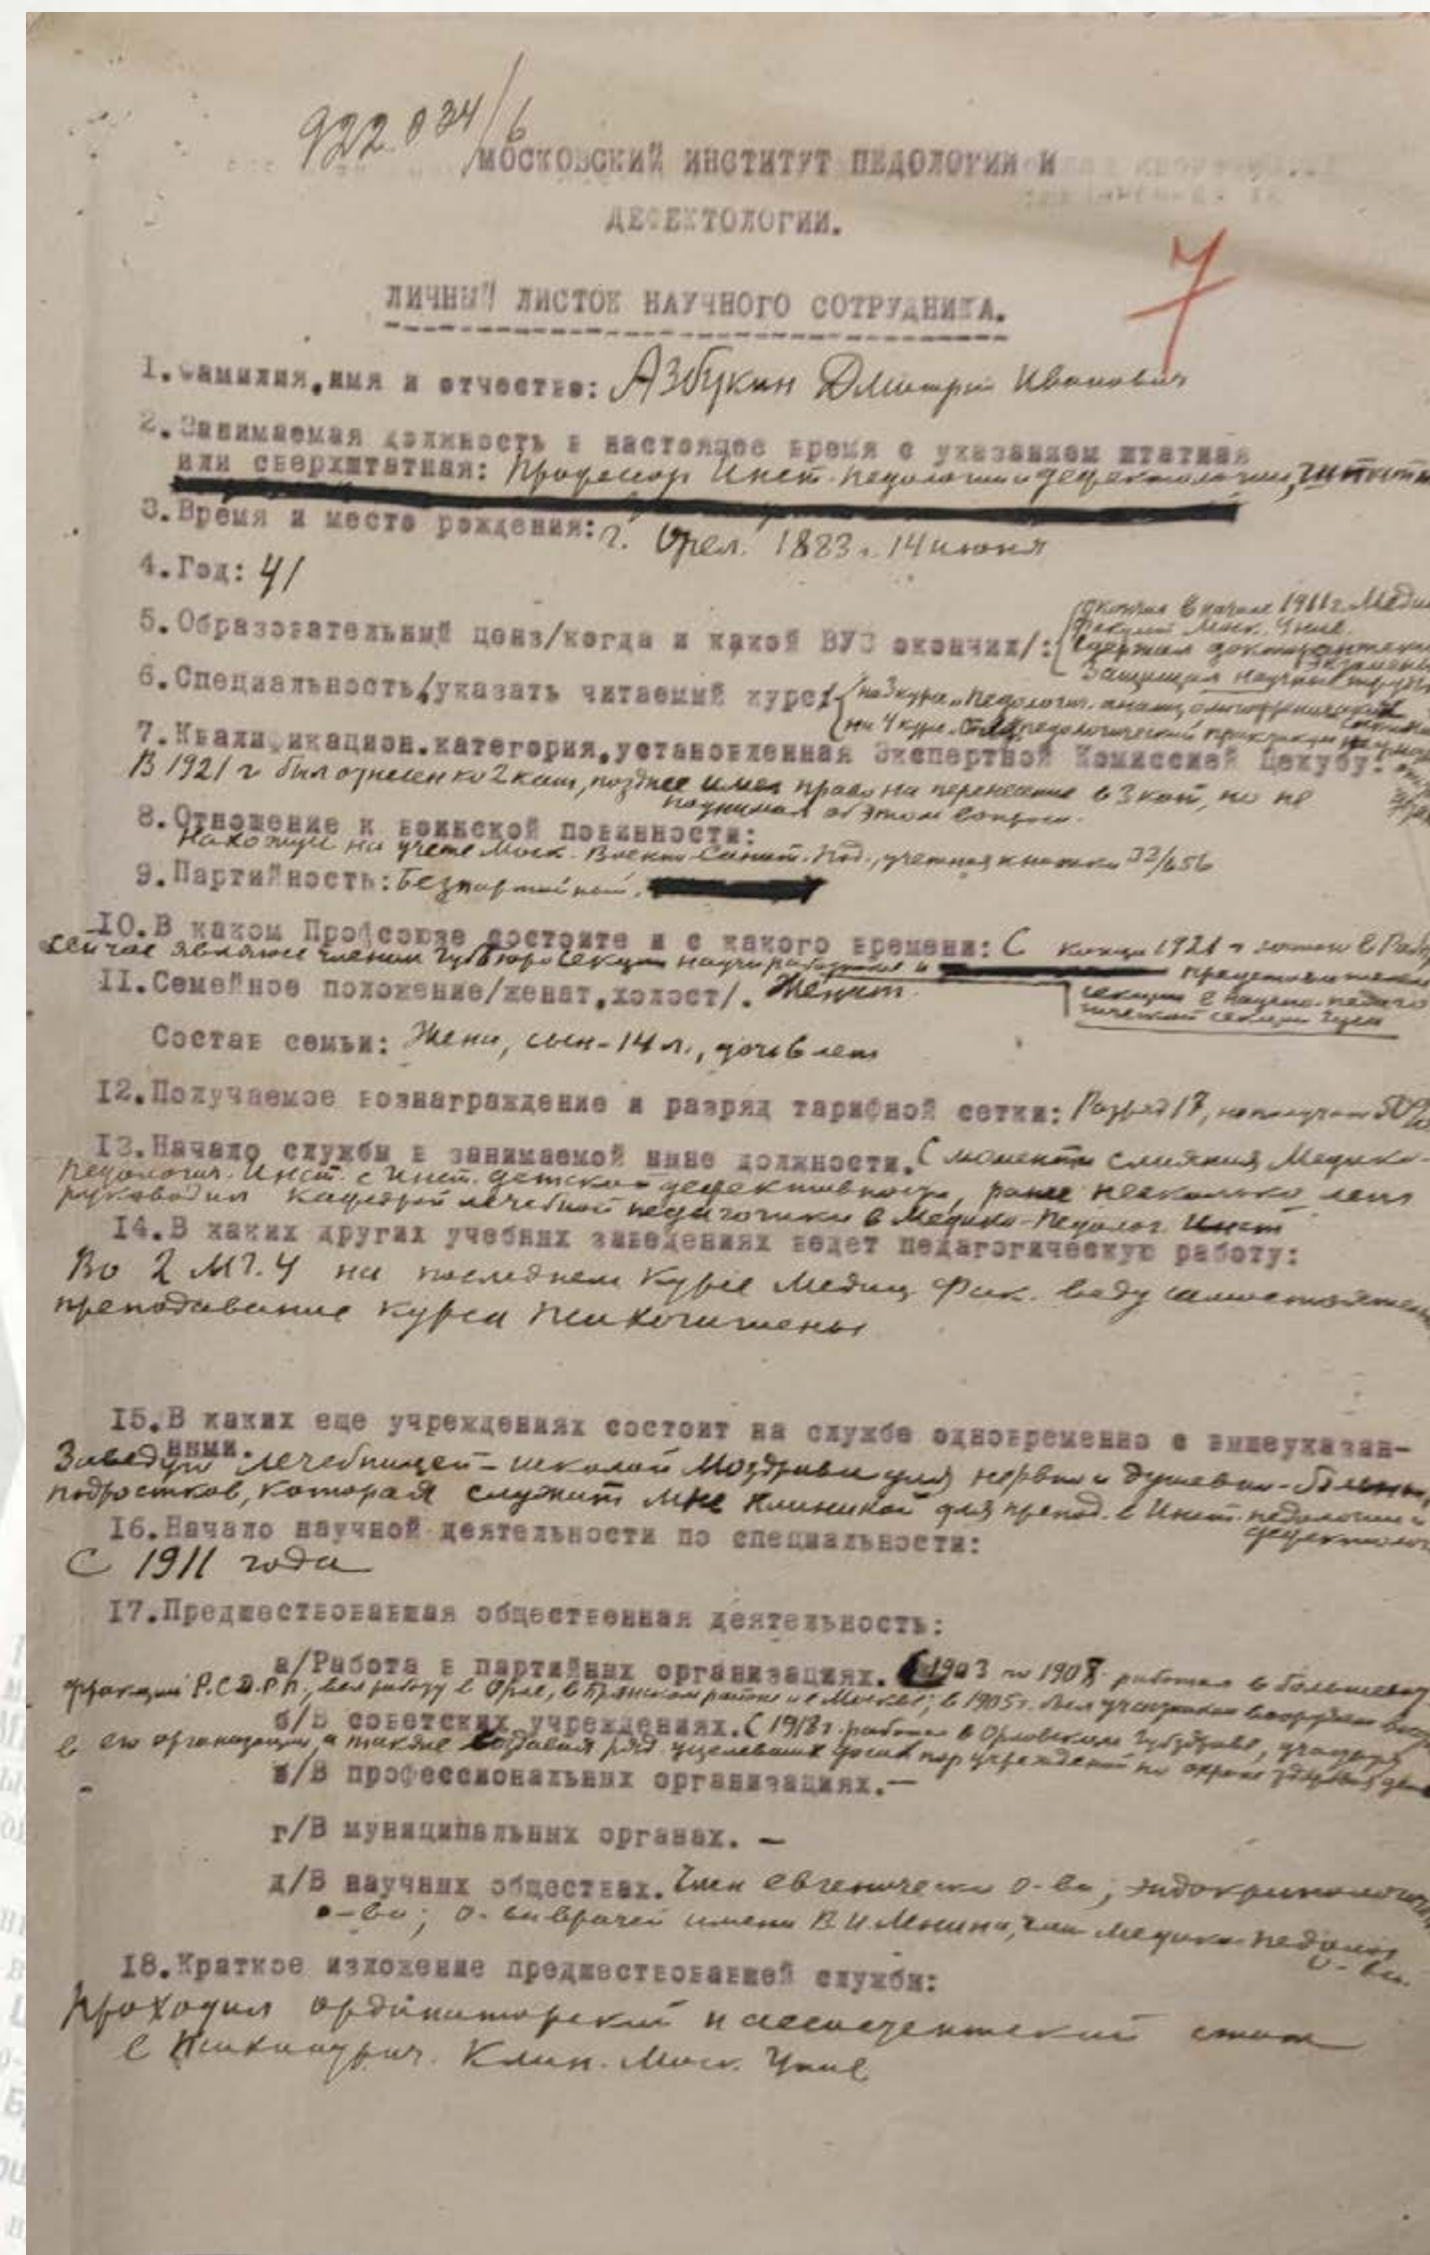 922.034/6
МОСКОВСКИЙ ИНСТИТУТ ПЕДОЛОГИИ И
ДЕФЕКТОЛОГИИ.
7
ЛИЧНЫЙ ЛИСТОК НАУЧНОГО СОТРУДНИКА.
1.Фамилия,имя и отчество: Азбукин Дмитрий Иванович
2.Занимаемая должность в настоящее время с указанием штатная
или сверхштатная: Профессор Инст. педологии и дефектологии,
3.Время и место рождения: г. Орел. 1883 г. 14 июня
4.Год: 41
окончил в начале 1911 г. Медиц
Факульт Моск. Унив.
5.Образовательный ценз/когда и какой ВУЗ окончил/: сдержал докторантские
экзамены
Защищал научные труды
6.Специальность/указать читаемый курс/ на 3 курсе Педологич. анализ
на 4 курсе педологический практикум
7.Квалификацион.категория,установленная Экспертной Комиссией Цекубу:
В 1921 г был отнесен ко 2 кат, позднее имел право на перенесение в 3 кат, но не
поднимал об этом вопроса.
8.Отношение к воинской повинности:
Нахожусь на учете Моск. Военно-Санит. , учетная книжка 33/656
9.Партийность: Безпартийный.
10.В каком Профсоюзе состоите и с какого времени: С конца 1921 г состою в
сейчас являюсь членом Губбюро Секции научн работников и представителем
11.Семейное положение/женат,холост/. Женат.
секции в научно-педаго
гической секции Гуса
Состав семьи: Жена, сын-14 л., дочь 6 лет
12.Получаемое вознаграждение и разряд тарифной сетки: Разряд 17, но получаю 50%
13.Начало службы в занимаемой ныне должности. С момента слияния Медико-
педологич. Инст. с Инст. детской дефективности, ранее несколько лет
руководил кафедрой лечебной педагогики в Медико-Педолог. Инст
14.В каких других учебных заведениях ведет педагогическую работу:
Во 2 М.Г.У на последнем курсе Медиц Фак. веду самостоятельн
преподавание курса психогигиены
15.В каких еще учреждениях состоит на службе одновременно с вышеуказан-
ными.
Заведую лечебницей-школой Мосздрава для нервно и душевно-больных
подростков, которая служит мне клиникой для препод. в Инст. педологии и
дефектолог
16.Начало научной деятельности по специальности:
С 1911 года
17.Предшествовавшая общественная деятельность:
а/Работа в партийных организациях. С 1903 по 1908 работал в большевист
фракции Р.С.Д.Р.П., вел работу в Орле, в Брянском районе и в Москве; в 1905 г. был участником вооружен
б/В советских учреждениях. С 1918 г. работал в Орловском Губздраве, участвуя
в его организации, а также создавая ряд уцелевших до сих пор учреждений по охране здоровья
в/В профессиональных организациях.—
г/В муниципальных органах. —
д/В научных обществах. Член евгеническ о-ва; эндокринологич
о-ва; о-ва врачей имени В.И. Ленина, член медико-педолог
о-ва.
18.Краткое изложение предшествовавшей службы:
Проходил ординаторский и ассистентский стаж
в Психиатрич. Клин. Моск. Унив